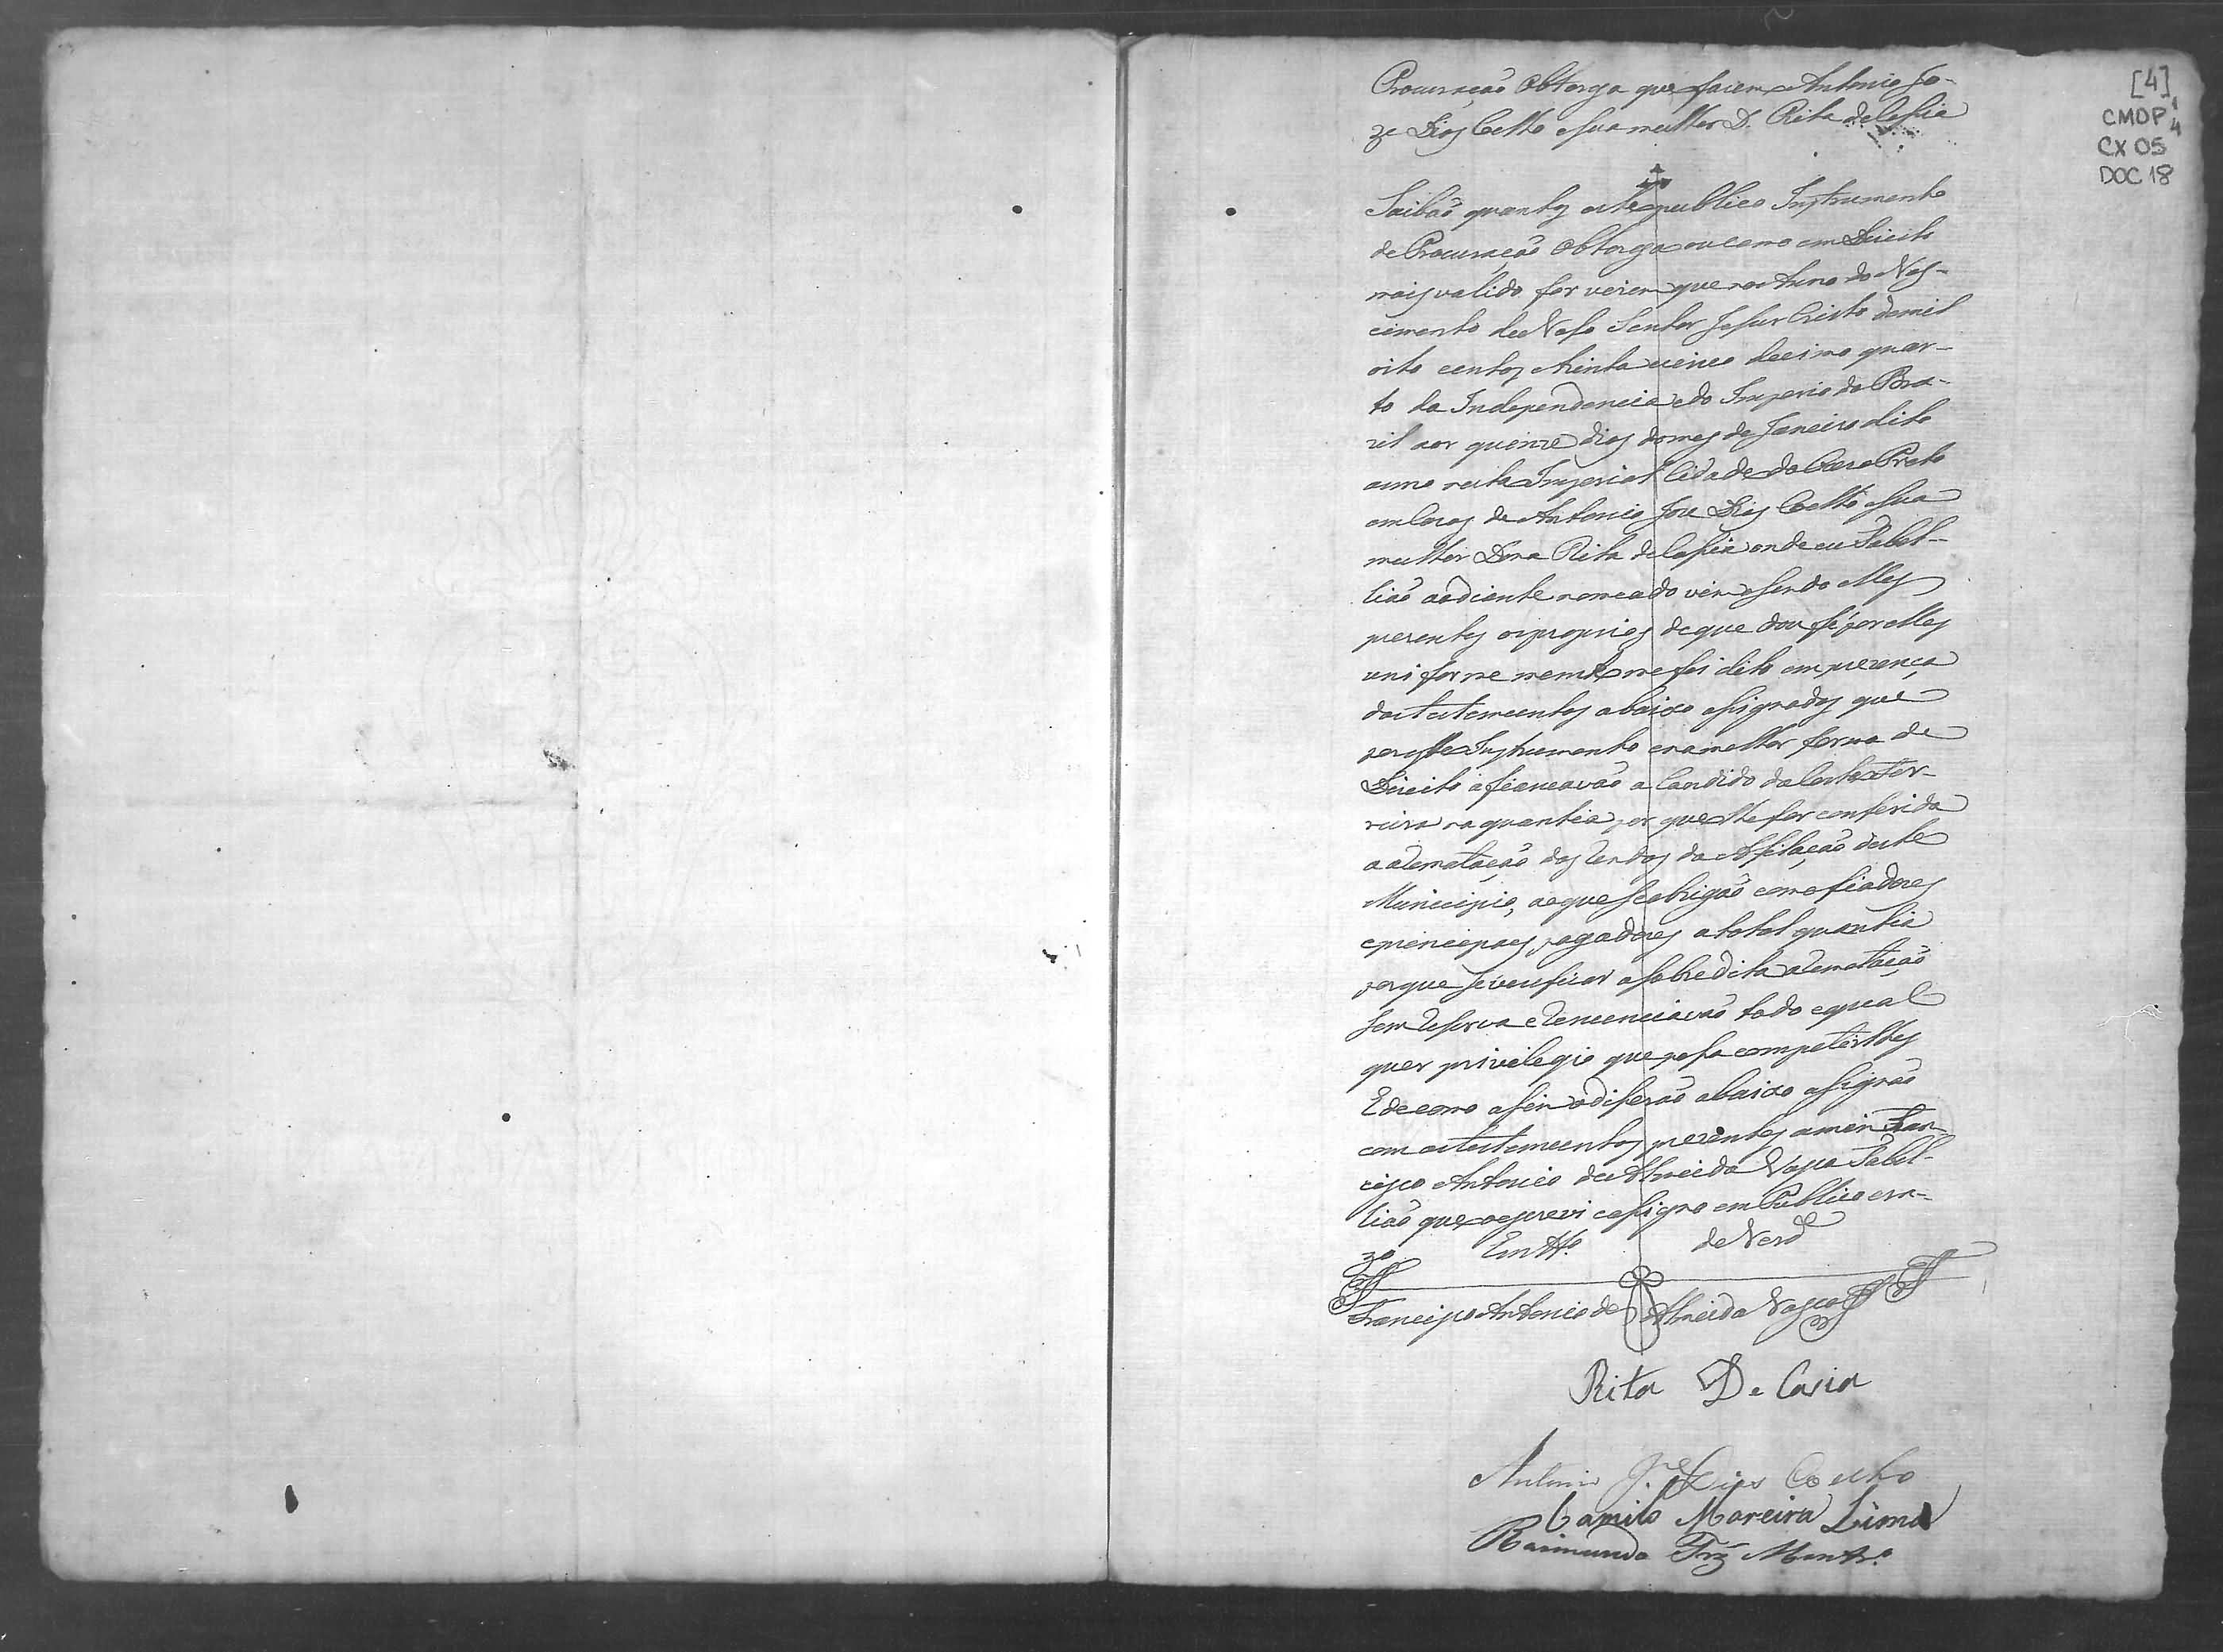 [4]
CMOP 1/4
CX 05
DOC 18
Procuração Obtorga que fazem Antonio Jo-
ze Dias Coelho e sua mulher D. Rita de Cassia
Saibaõ quantos este publico Instrumento
de Procuração Obtorga ou como em Direito
mais valido for virem que no Anno do Nas-
cimento de Nosso Senhor Jesus Cristo de mil
oito centos trinta e cinco decimo quar-
to da Independencia e do Imperio do Bra-
zil aos quinze dias do mes de Janeiro dito
anno nesta Imperial Cidade do Ouro Preto
em Cazas de Antonio Jose Dias Coelho e sua
mulher Dona Rita de Cassia onde eu Tabel-
liaõ aodiante nomeado vim e sendo elles
prezentes os proprios de que dou fé por elles
uniforme mente me foi dito em prezença
das testemunhas abaixo assignadas que
por este Instrumento e na melhor forma de
Direito afiançavaõ a Candido da Costa Fer-
reira na quantia por que lhe for conferida
a arematação das rendas da Afilação deste
Municipio, ao que se obrigaõ como fiadores
e principaes pagadores a total quantia
porque se verificar a sobredita arematação
sem reserva e renunciavaõ todo e qual
quer privilegio que possa competirlhes
E de como assim o disseraõ abaixo assignaõ
com as testemunhas prezentes a mim Fran-
cisco Antonio de Almeida Vasco Tabel-
liaõ que o escrevi e assigno em Publico e ra-
zo
Em ttº de Verdᵉ
Francisco Antonio de Almeida Vasco
Rita De Casia
Antonio Jᵉ Dias Coelho
Camilo Moreira Lima
Raimundo Frz Montrº